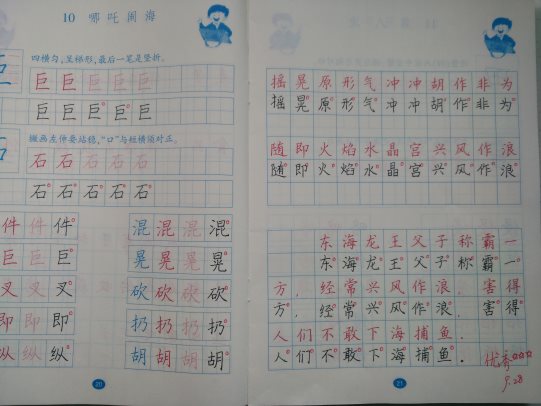 10 哪吒闹海
四横匀,呈梯形,最后一笔是竖折。
巨 巨 巨 巨 巨
巨 巨 巨 巨 巨
撇画左伸要站稳,“口”与短横须对正。
石
石 石 石 石 石
石 石 石 石 石
件 件 件
巨 巨 巨
叉 叉 叉
即 即 即
纵 纵 纵
混 混 混 混
晃 晃 晃 晃
砍 砍 砍 砍
扔 扔 扔 扔
胡 胡 胡 胡
20
摇晃原形气冲冲胡作非为
摇晃原形气冲冲胡作非为
随即火焰水晶宫兴风作浪
随即火焰水晶宫兴风作浪
东海龙王父子称霸一
东海龙王父子称霸一
方,经常兴风作浪,害得
方,经常兴风作浪,害得
人们不敢下海捕鱼.
人们不敢下海捕鱼.
优秀
9.28
21